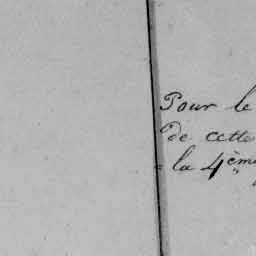 Pour le
de cette
= la 4ème